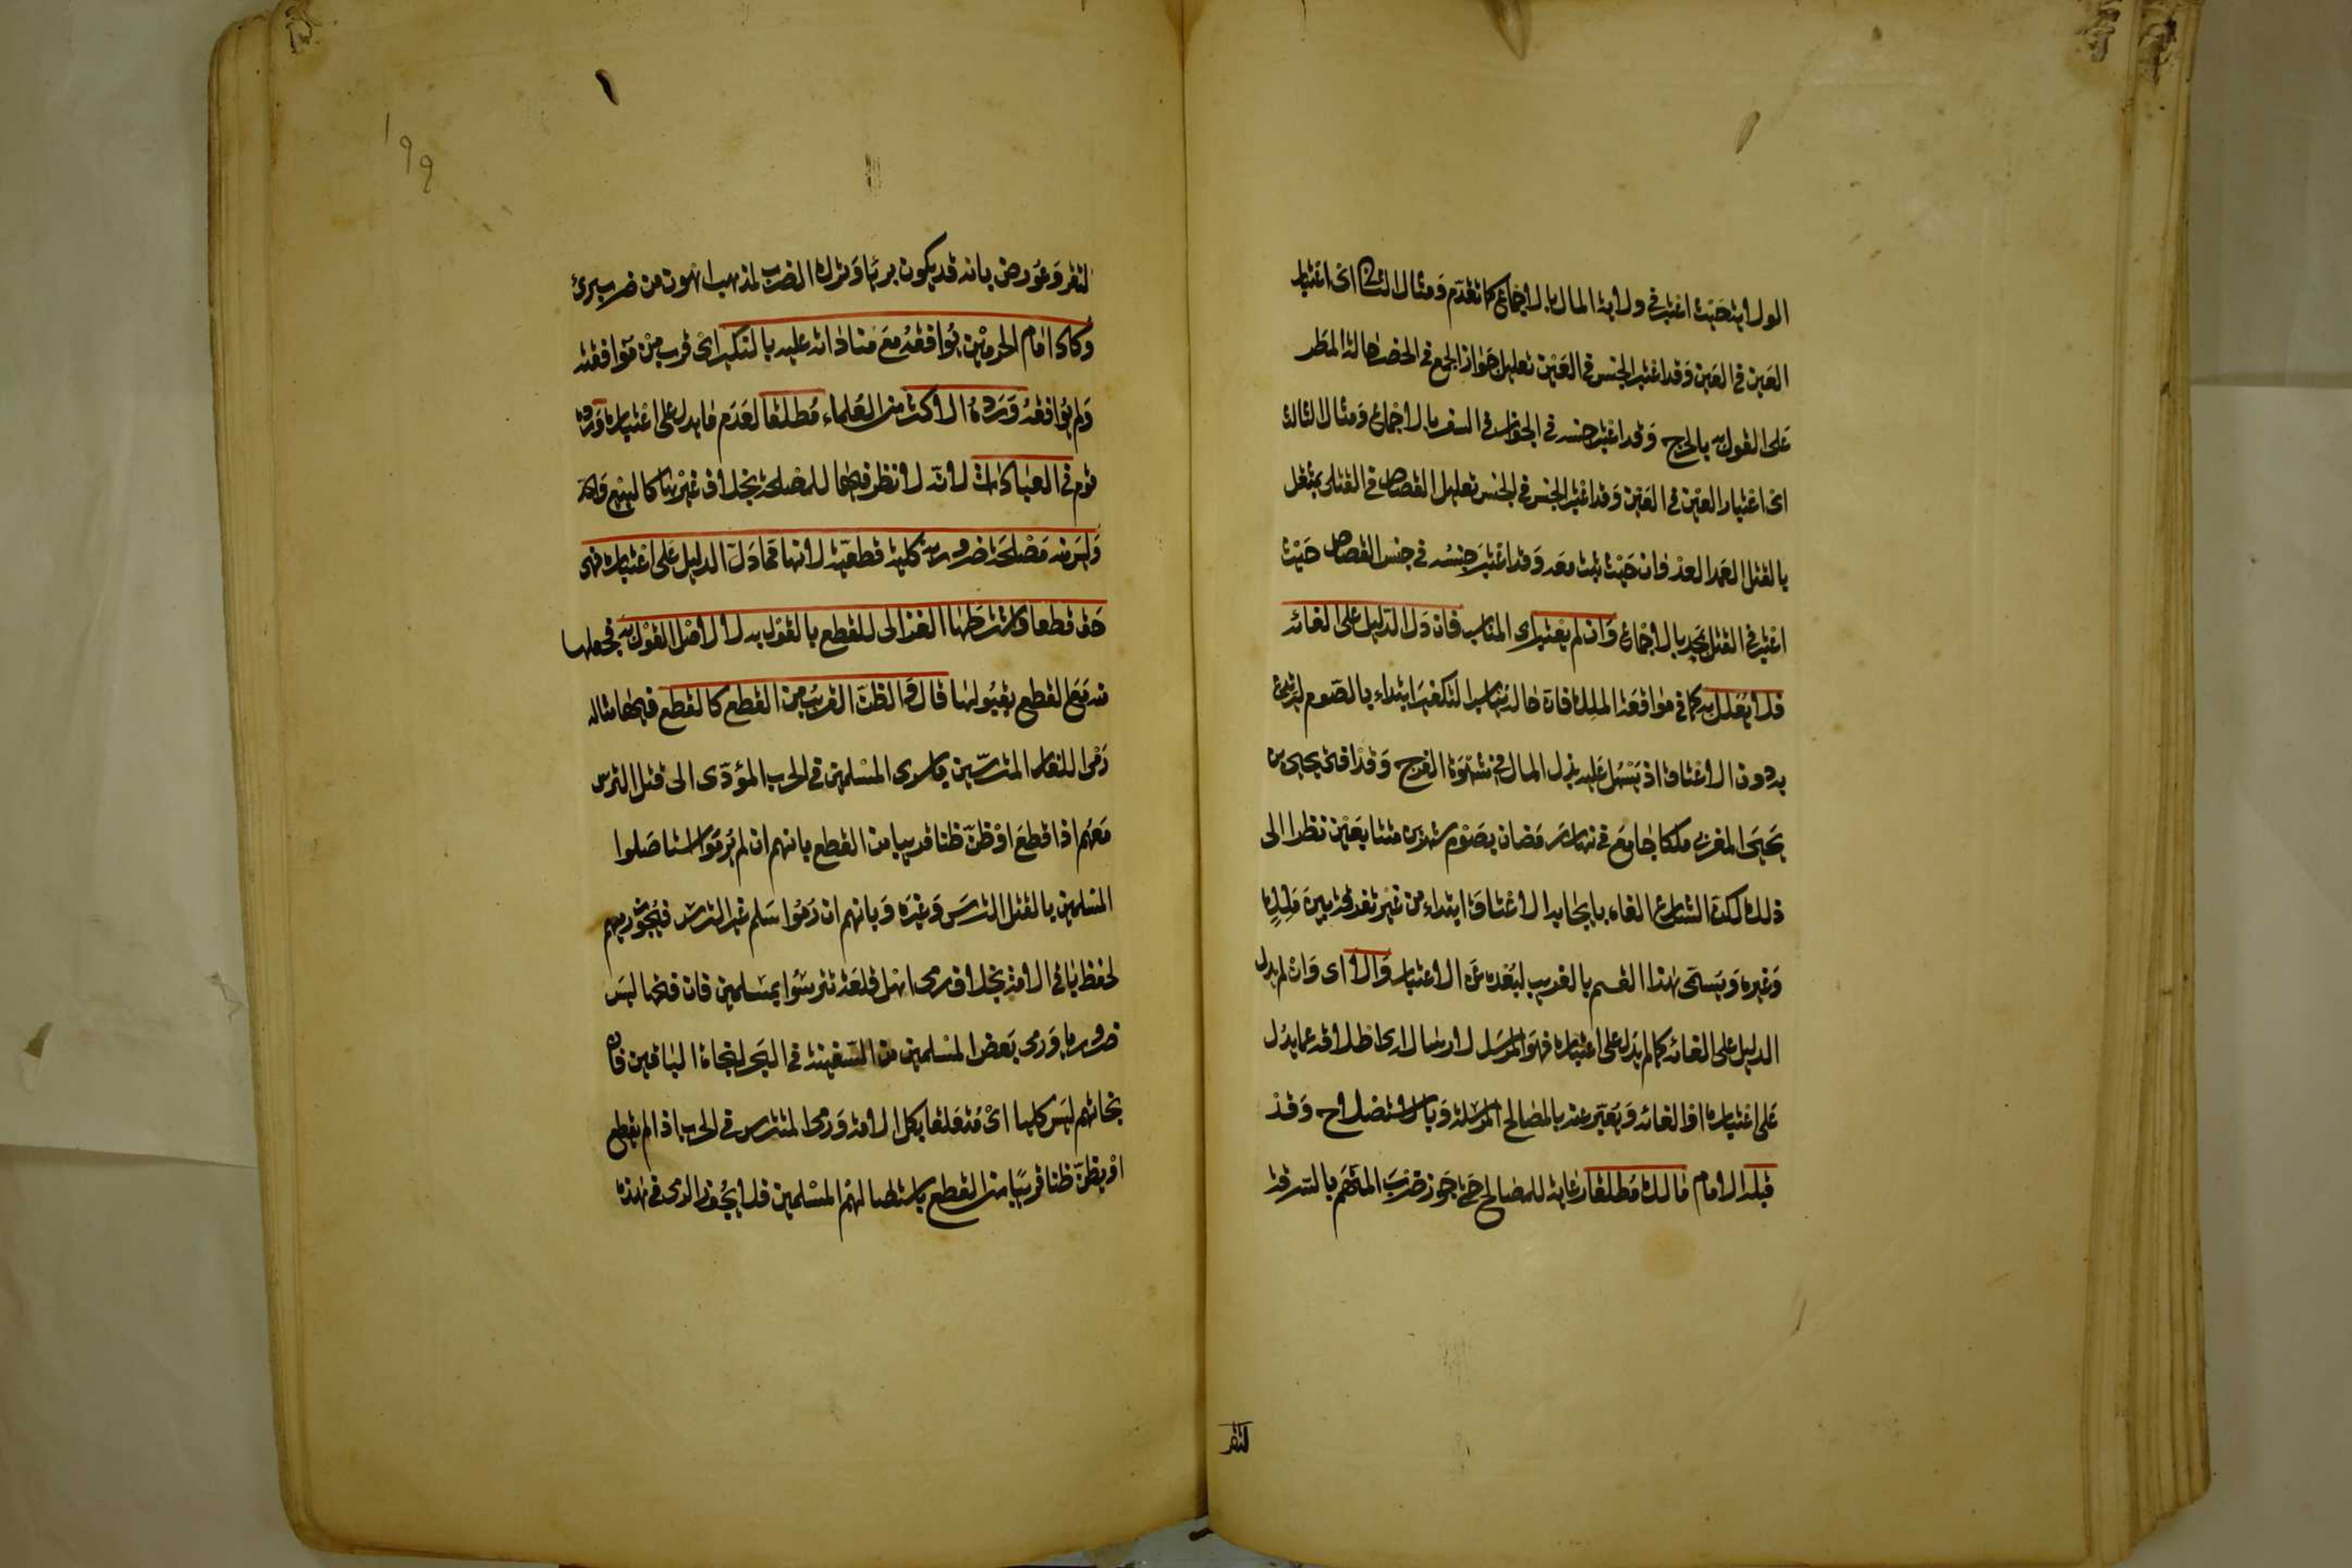 الولاية حيث اعتبر في ولاية المال بالاجماع كما تقدم ومثال الثاني اى اعتبار
العين في العين وقد اعتبر الجنس في العين تعليل جواز الجمع في الحضر حالة المطر
على القول به بالحرج وقد اعتبر جنسه في الجواز في السفر بالاجماع ومثال الثالث
اى اعتبار العين في العين وقد اعتبر الجنس في الجنس تعليل القصاص في القتل بمثقل
بالقتل العمد العدوان حيث ثبت معه وقد اعتبر جنسه في جنس القصاص حيث
اعتبر في القتل بمحدد بالاجماع وان لم يعتبر اى المناسب فان دل الدليل على الغائه
فلا يعلل به كما في مواقعة الملك فان حاله يناسب التكفير ابتداء بالصوم ليرتدع
بدون الاعتاق اذ يسهل عليه بذل المال في شهوة الفرج وقد افتى يحيى بن
يحيى المغربي ملكا جامع في نهار رمضان بصوم شهرين متتابعين نظرا الى
ذلك لكن الشارع الغاه بايجابه الاعتاق ابتداء من غير تفرقة بين ملك
وغيره ويسمى هذا القسم بالغريب لبعده عن الاعتبار والا اى وان لم يدل
الدليل على الغائه كما لم يدل على اعتباره فهو المرسل لارساله اى اطلاقه عما يدل
على اعتباره او الغائه ويعبر عنه بالمصالح المرسلة وبالاستصلاح وقد
قبله الامام مالك مطلقا رعاية للمصالح حتى جوز ضرب المتهم بالسرقة
لتقر
١٩٩
لتقر وعورض بانه قد يكون بريئا وترك الضرب لمذنب اهون من ضرب برئ
وكاد امام الحرمين يوافقه مع مناداته عليه بالنكير اى قرب من موافقته
ولم يوافقه ورده الاكثر من العلماء مطلقا لعدم ما يدل على اعتباره ورده
قوم في العبادات لانه لا نظر فيها للمصلحة بخلاف غيرها كالبيع والحد
وليس منه مصلحة ضرورية كلية قطعية لانها مما دل الدليل على اعتباره فهي
حق قطعا واشترطها الغزالى للقطع بالقول به لا لاصل القول به فجعلها
منه مع القطع بقبولها قال والظن القريب من القطع كالقطع فيها مثاله
رمى الكفار المتترسين باسرى المسلمين في الحرب المؤدى الى قتل الترس
معهم اذا قطع او ظن ظنا قريبا من القطع بانهم ان لم يرموا استاصلوا
المسلمين بالقتل الترس وغيره وبانهم ان رموا سلم غير الترس فيجوز رميهم
لحفظ باقى الامة بخلاف رمى اهل قلعة تترسوا بمسلمين فان فتحها ليس
ضروريا ورمى بعض المسلمين من السفينة في البحر لنجاة الباقين فان
نجاتهم ليس كليا اى متعلقا بكل الامة ورمى المتترس في الحرب اذا لم يقطع
او يظن ظنا قريبا من القطع باستئصالهم المسلمين فلا يجوز الرمى في هذه